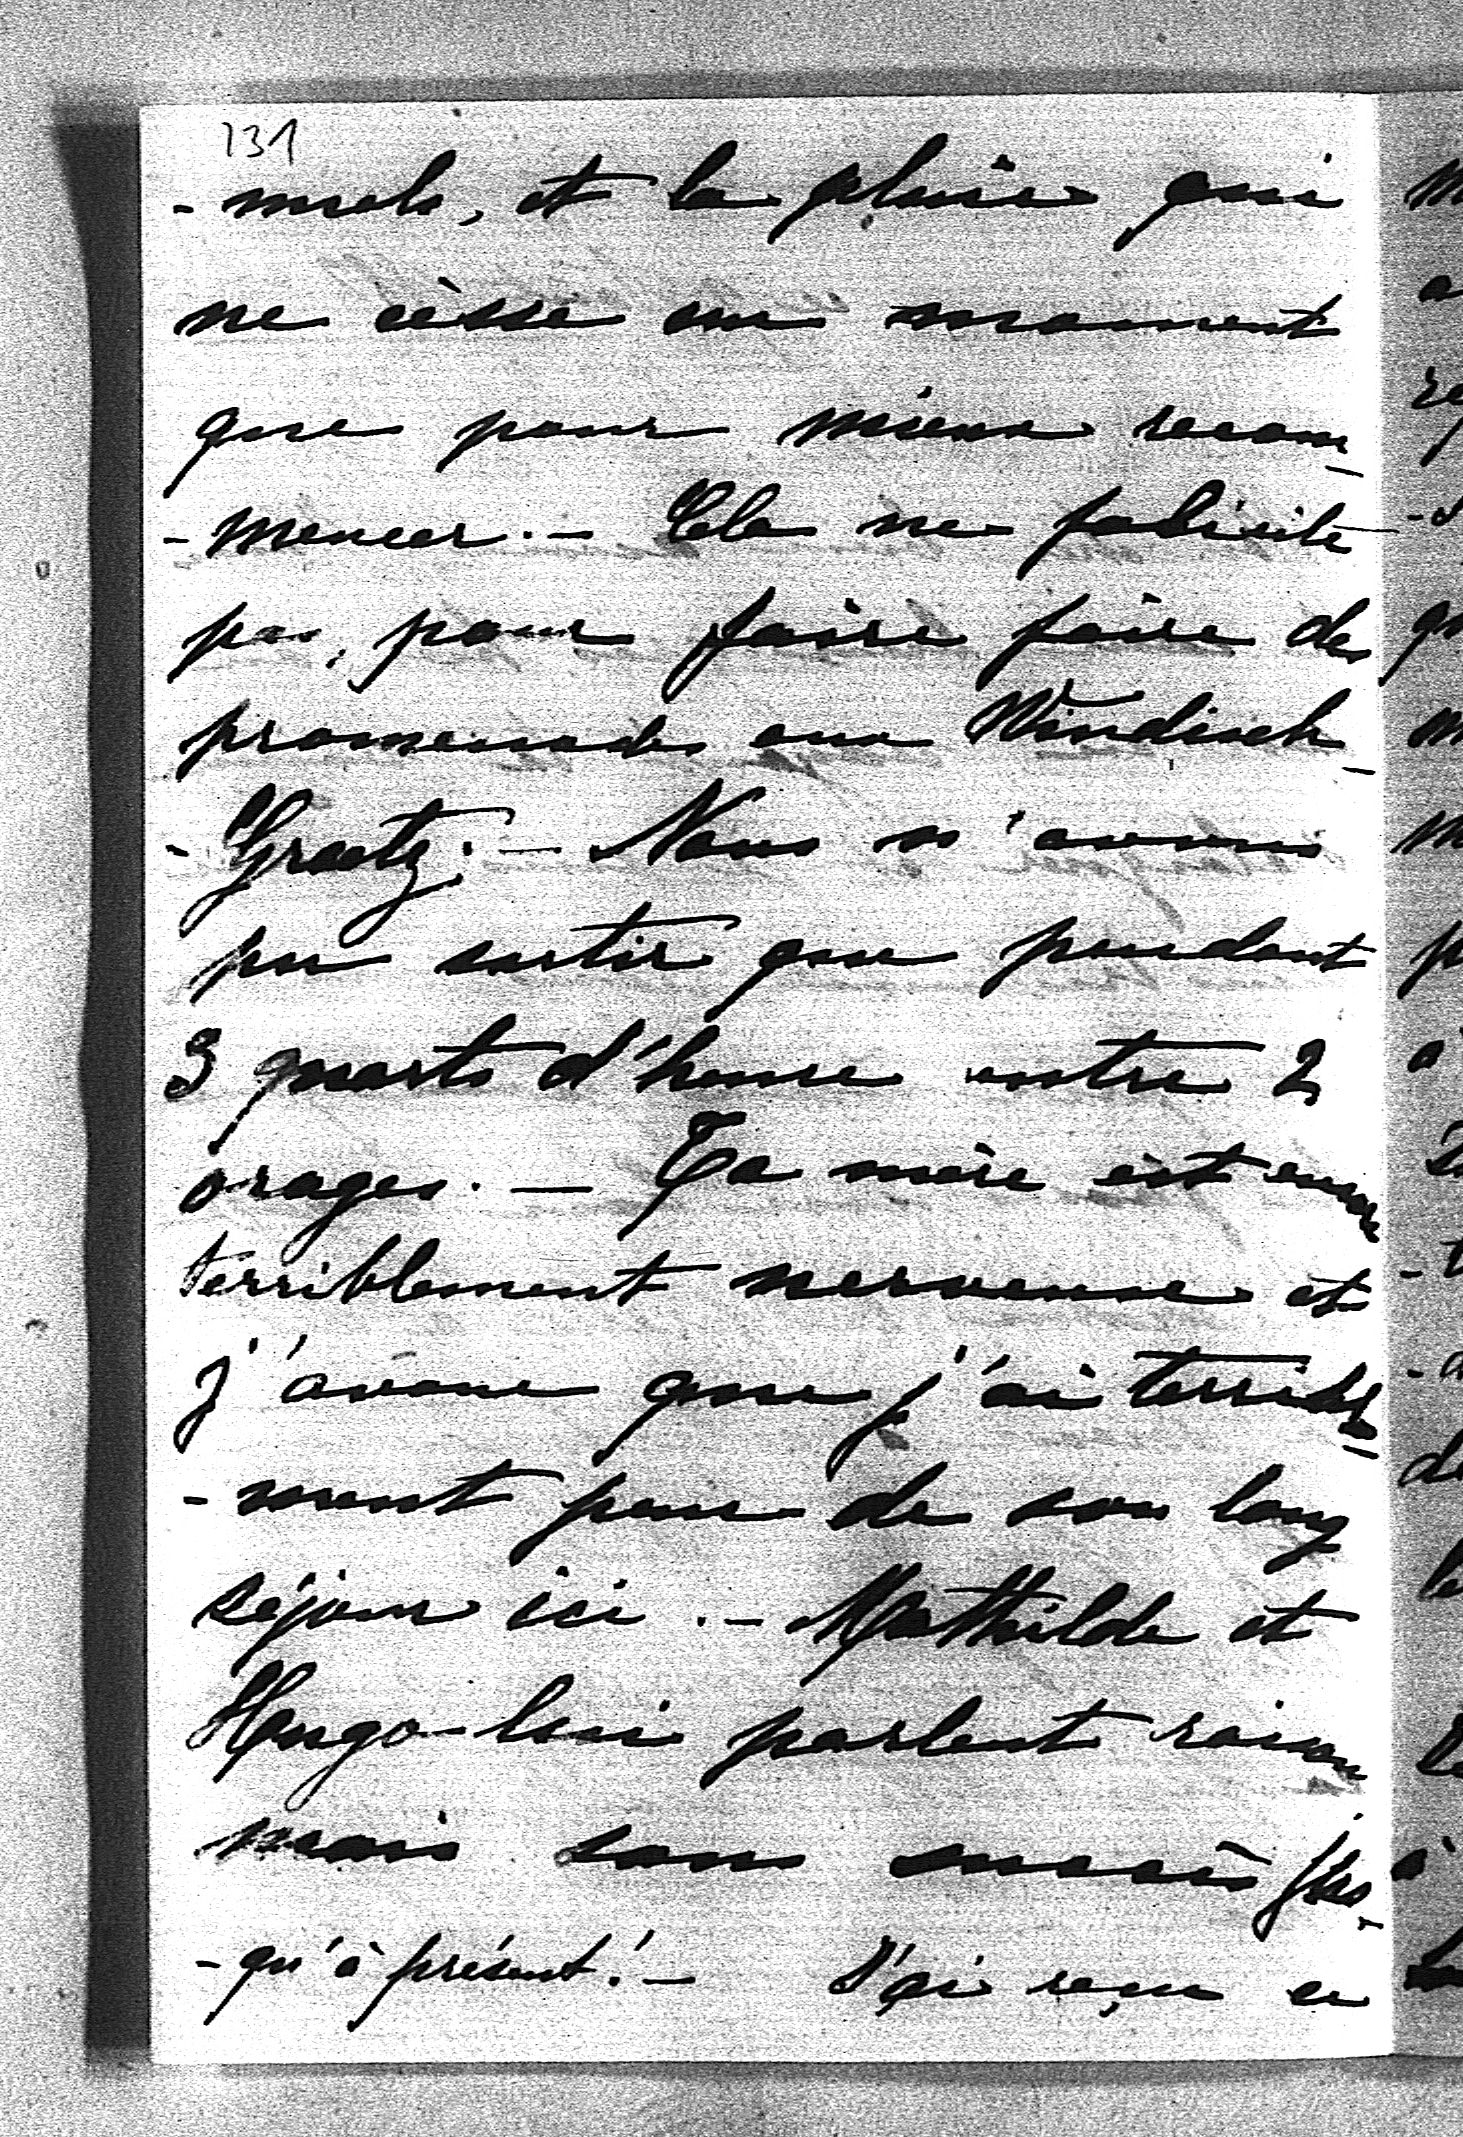 131
- nuels, et la pluie qui
ne cèsse un moment
que pour mieux recom-
- mencer. - Cela ne facilite
pas, pour faire faire des
promenades aux Windisch-
- Graetz. - Nous n'avons
pu sortir que pendant
3 quarts d'heure entre 2
orages. - Ta mère est encore
terriblement nerveuse et
j'avoue que j'ai terrible-
- ment peur de son long
séjour ici. - Mathilde et
Hugo lui parlent raison
mais sans succès jus-
- qu'à présent! - J'ai reçu ce